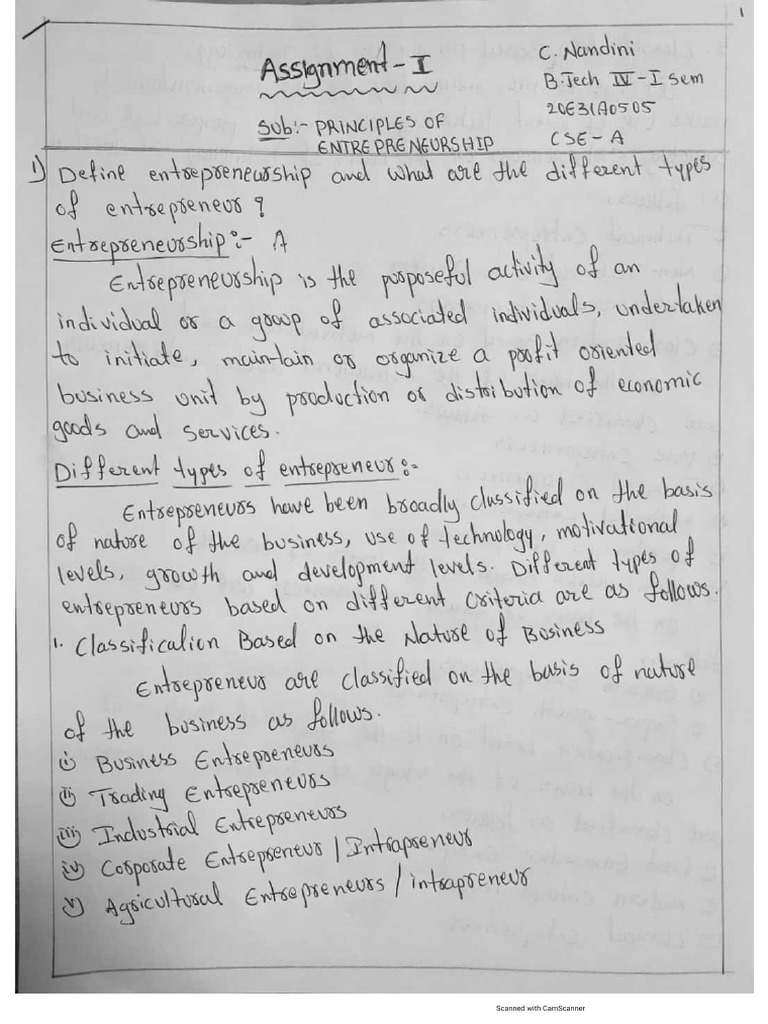 1
Assignment-I
C. Nandini
B.Tech IV-I Sem
20E31A0505
CSE-A
Sub:- PRINCIPLES OF
ENTREPRENEURSHIP
1) Define entrepreneurship and what are the different types
of entrepreneur?
Entrepreneurship:- A
Entrepreneurship is the purposeful activity of an
individual or a group of associated individuals, undertaken
to initiate, maintain or organize a profit oriented
business unit by production or distribution of economic
goods and services.
Different types of entrepreneur:-
Entrepreneurs have been broadly classified on the basis
of nature of the business, use of technology, motivational
levels, growth and development levels. Different types of
entrepreneurs based on different criteria are as follows.
1. Classification Based on the Nature of Business
Entrepreneur are classified on the basis of nature
of the business as follows.
i) Business Entrepreneurs
ii) Trading Entrepreneurs
iii) Industrial Entrepreneurs
iv) Corporate Entrepreneur / Intrapreneur
v) Agricultural Entrepreneurs / intrapreneur
Scanned with CamScanner